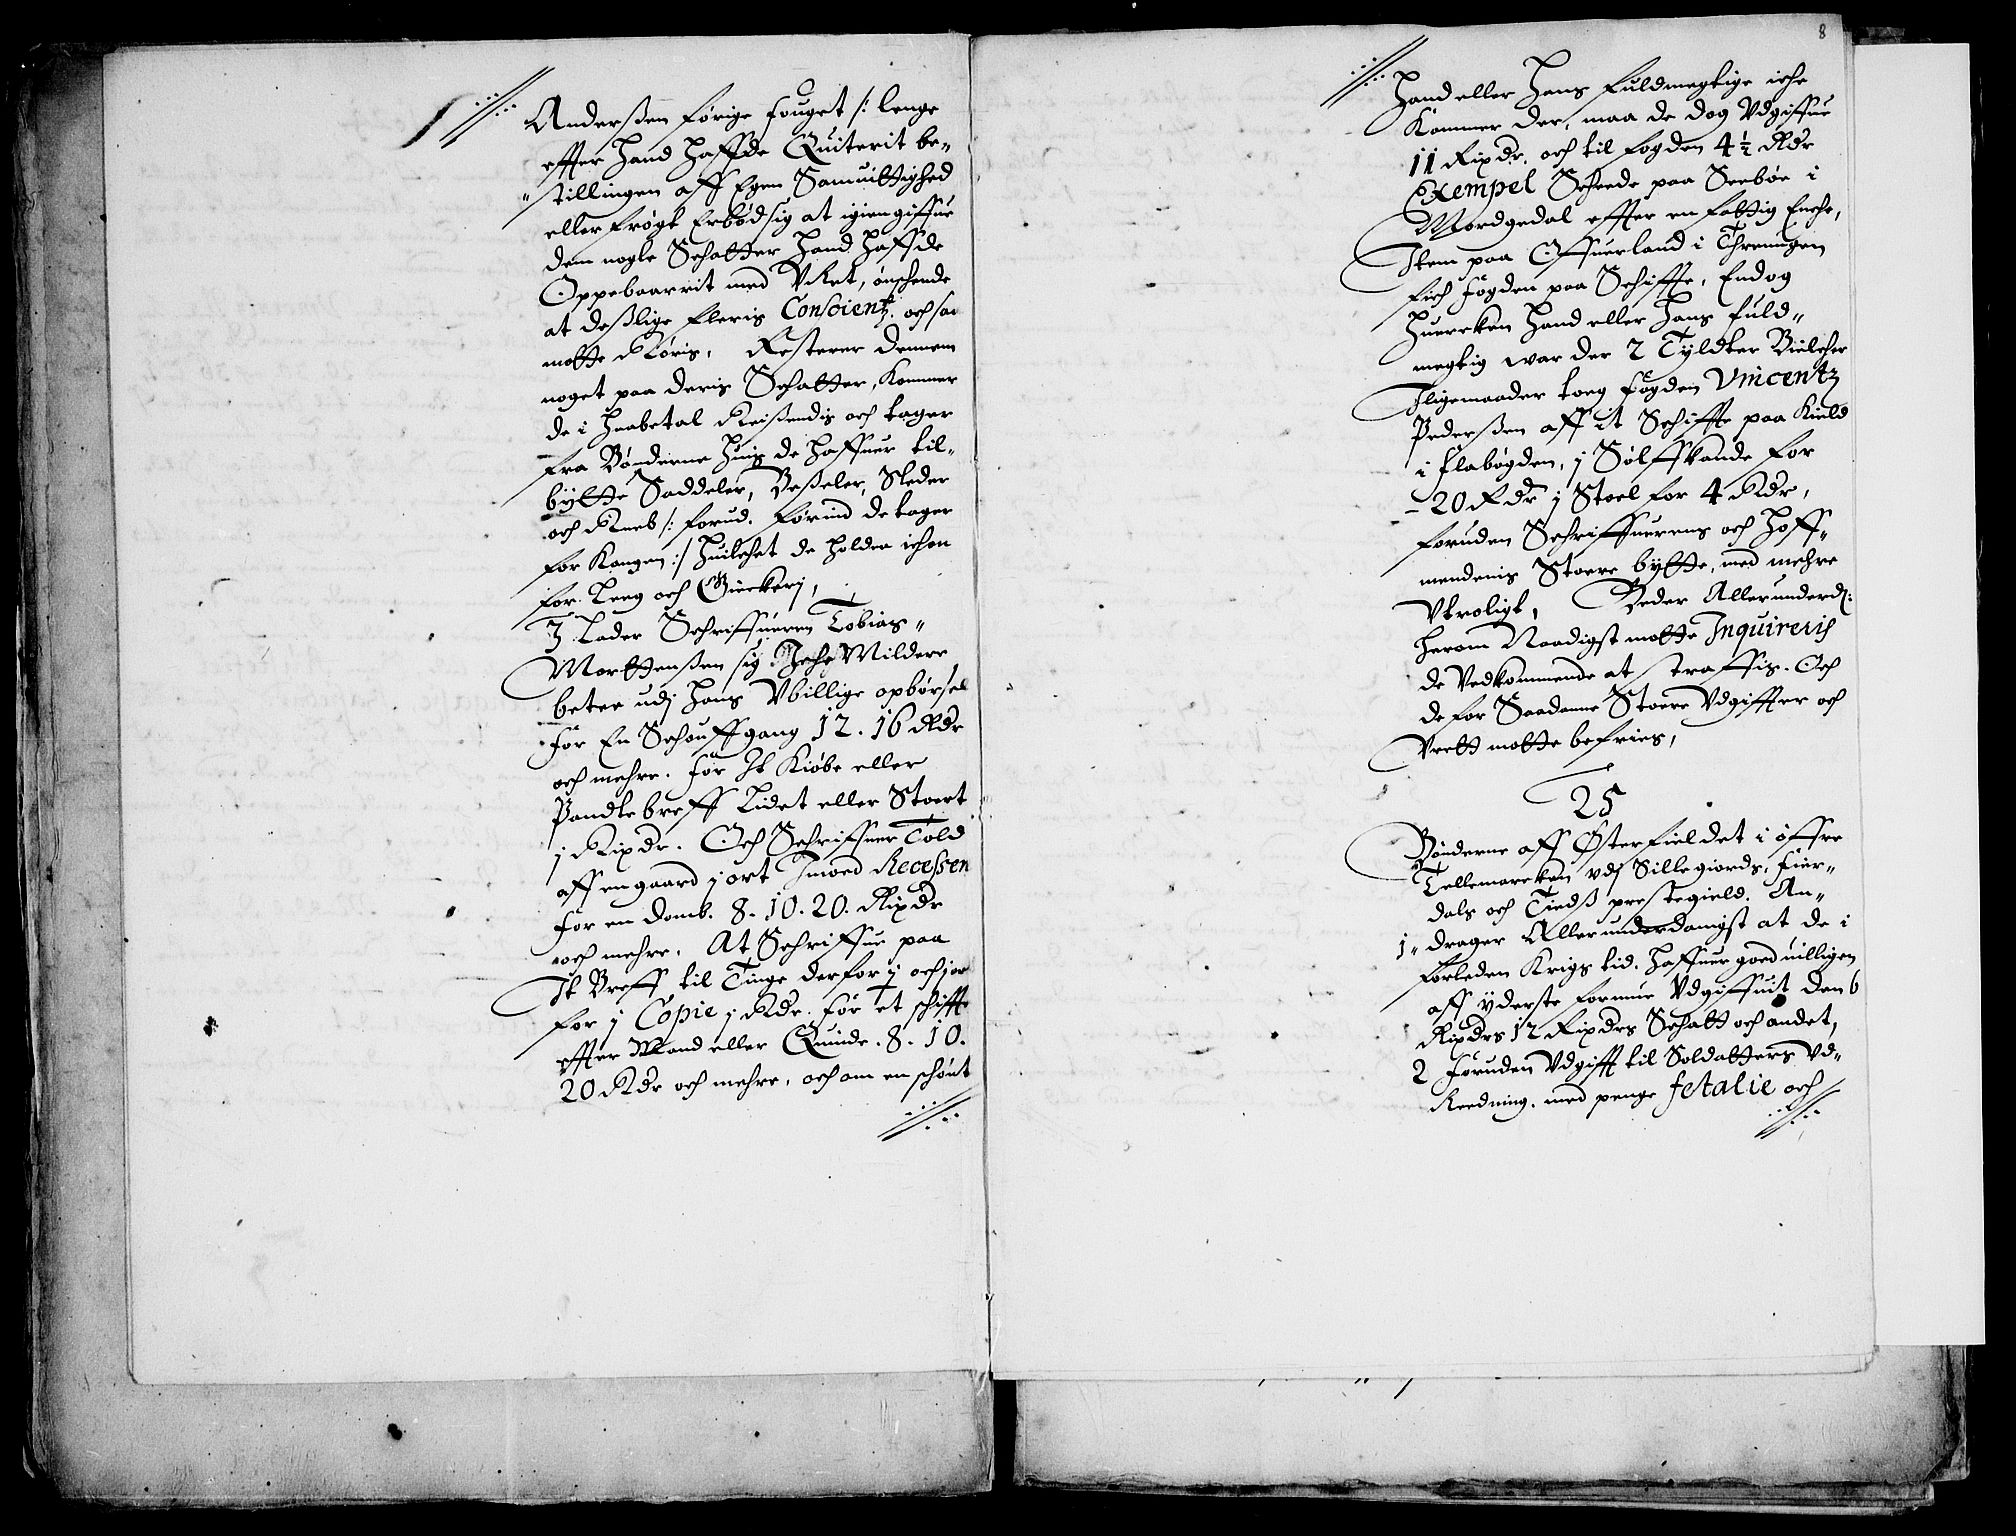 Anderßen förige fouget /: lenge
effter hand haffde Quiterit be„
„stillingen aff Egen Samuittighed
eller frögt Erböd sig at igiengiffue
dem nogle Schatter hand haffde
Oppebaarrit med VRet, önschende
at deßlige fleris Conscientz. och saa
motte Röris, Resterer dennem
noget paa deris Schatter, kommer
de i haabetal Reißendis och tager
fra Bönderne huis de haffuer til„
bytte Saddeler, Beßeler, Sleder
och Kneb /: forud.förind de tager
for Kongen :/ huilchet de holder ichon
for Leeg och Gieckerj,
3. Lader Schriffueren Tobias„
Mortenßen sig Iche Mildere
betee udj hans Vbillige opbörsel
för En Schouffgang 12. 16 Rdr
och mehre. för It Kiöbe eller
Pandtebreff Lidet eller Stoert
j Rixdr. Och Schriffuer Told
aff en gaard j ort Imoed Recessen
för en Domb. 8. 10. 20. Rixdr
och mehre. At Schriffue paa
It Breff til Tinge derfor j och j or
for j Copie j Rdr. för et schifte
effter Mand eller Quinde. 8. 10.
20 Rdr och mehre, och om en schönt
8
hand eller hans fuldmegtige iche
kommer der, maa de dog Vdgiffue
11 Rixdr. och til fogden 4 ½ Rdr
Exempel Scheede paa Seeböe i
Mordgedal effter en fattig Enche,
Item paa Offuerland i Threnugen
fich fögden paa Schiffte, Endog
huercken hand eller hans fuld„
megtig war der 2 Tyldter Bielcher
Iligemaader toeg fögden Vincentz
Pederßen aff it Schiffte paa Kield
i flabögden, j Sölffkande for
20 Rdr j Stoel for 4 Rdr,
foruden Schriffuerens och hoff„
mendenis Stoere bytte, med mehre
Vtroligt, Beder Allerunderd:
herom Naadigst motte Inquireris
de Vedkommende at straffis. Och
de for Saadanne Stoere Vdgiffter och
Vrett motte befries,
25
Bönderne aff Österfieldet i öffre
Tellemarcken vdj Sillegiords, fier„
dals och Tindß prestegield. An„
1„ drager Allerunderdanigst at de i
forleden Krigs tid. haffuer goeduilligen
aff yderste formue Vdgiffuit den 6
Rixdrs 12 Rixdrs Schatt och andet,
2 foruden Vdgifft til Soldatters Vd„
Reedning. med penge fetalie och